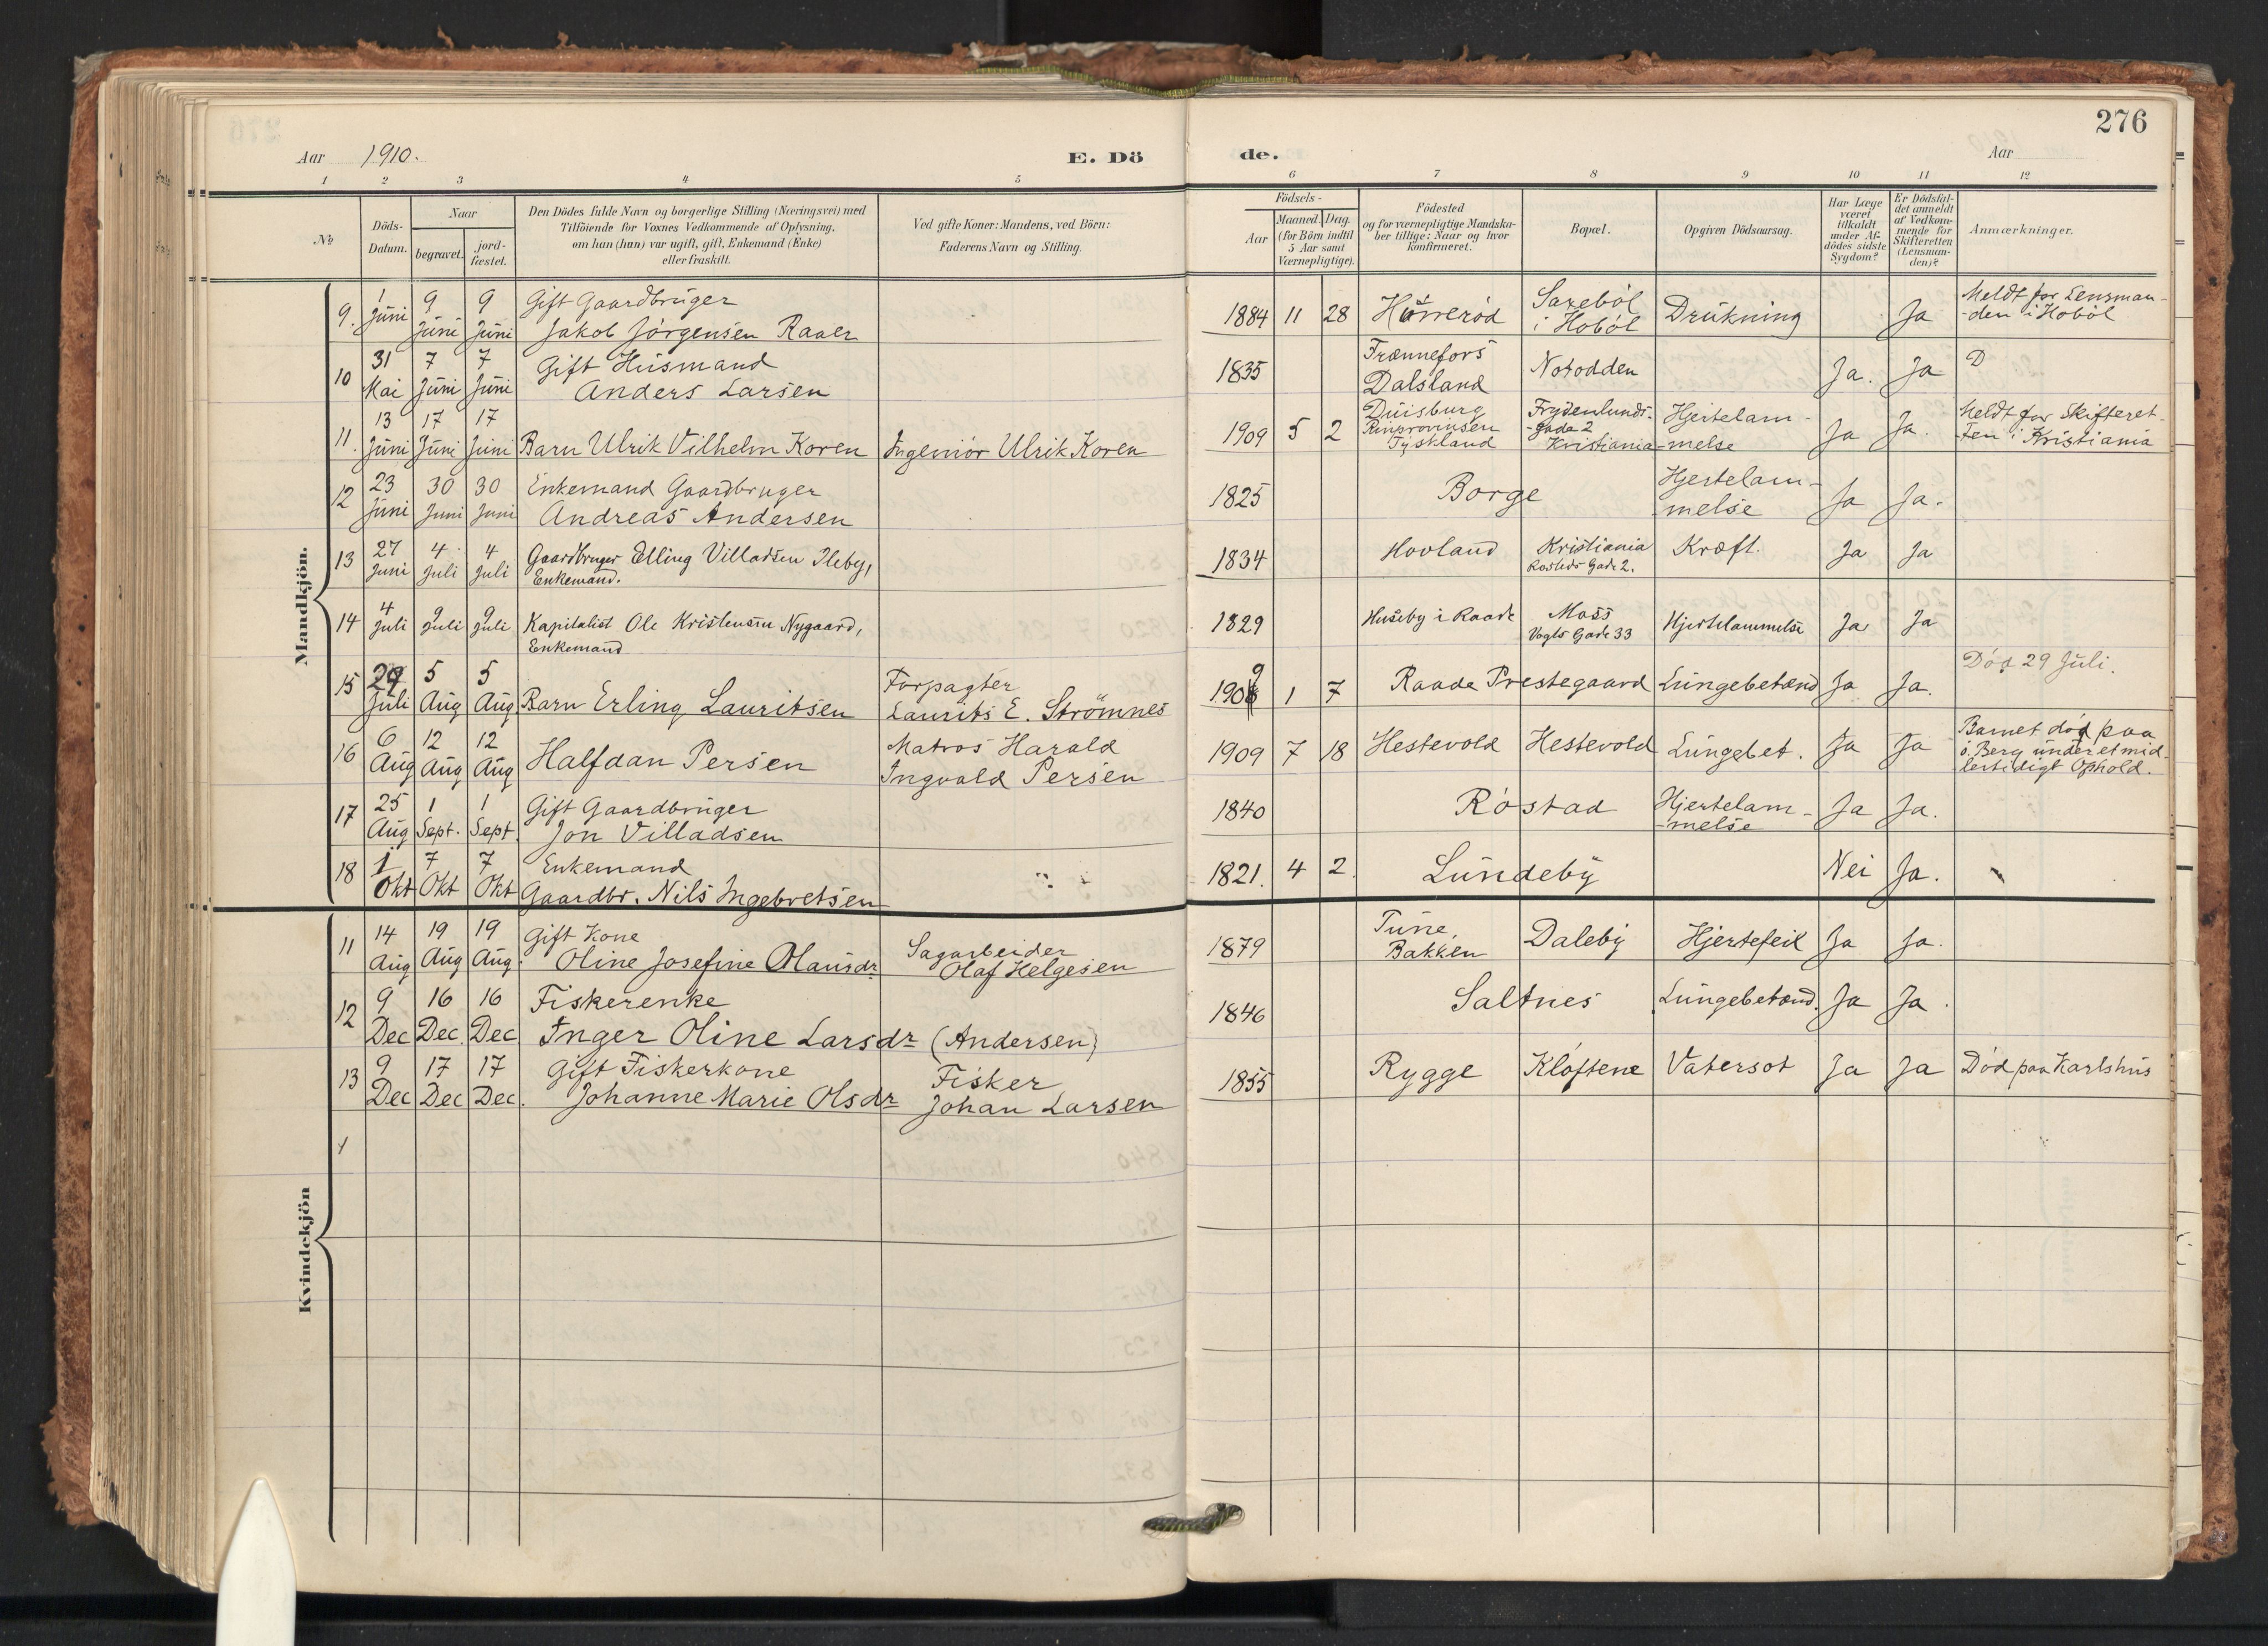 276
Aar 1910.
E. Dö
de.
Aar
1 2 3 4 5 6 7 8 9 10 11 12
No
Döds-
Datum.
Naar
begravet.
jord-
fæstet.
Den Dödes fulde Navn og borgerlige Stilling (Næringsvei) med
Tilföiende for Voxnes Vedkommende af Oplysning,
om han (hun) var ugift, gift, Enkemand (Enke)
eller fraskilt.
Ved gifte Koner: Mandens, ved Börn:
Faderens Navn og Stilling.
Födsels-
Aar
Maaned. Dag.
(for Börn indtil
5 Aar samt
Værnepligtige).
Födested
og for værnepligtige Mandska-
ber tillige: Naar og hvor
konfirmeret.
Bopæl.
Opgiven Dödsaarsag.
Har Læge
været
tilkaldt
under Af-
dödes sidste
Sygdom?
Er Dödsfal-
det anmeldt
af Vedkom-
mende for
Skifteretten
(Lensman-
den)?
Anmærkninger.
Mandkjön.
9. 1 Juni 9 Juni 9 Juni
Gift Gaardbruger
Jakob Jörgensen Raaer
1884 11 28
Saxeböl
i Hoböl
Drukning
Ja
Meldt for Lensman-
-den i Hoböl
10 31 Mai 7 Juni 7 Juni
Gift Husmand
Anders Larsen
1835
Frænnefors
Dalsland
Notodden
Ja. Ja
D
11. 13 Juni 17 Juni 17 Juni
Barn Ulrik Vilhelm Koren
Ingeniör Ulrik Koren
1909 5 2
Duisburg
Rinprovinsen
Tyskland
Frydenlunds-
-gade 2
Kristiania
Hjertelam-
-melse
Ja Ja.
Meldt for Skifteret-
-ten i Kristiania
12 23 Juni 30 Juni 30 Juni
Enkemand Gaardbruger
Andreas Andersen
1825
Borge
Hjertelam-
-melse
Ja Ja.
13 27 Juni 4 Juli 4 Juli
Gaardbruger Elling Villadsen Ileby,
Enkemand.
1834
Hovland
Kristiania
Gade 2.
Kræft.
Ja Ja
14 4 Juli 9 Juli 9 Juli
Kapitalist Ole Kristensen Nygaard,
Enkemand
1829
Huseby i Raade
Moss
Vogts Gade 33
Hjertelammelse
Ja Ja
15 29 Juli 5 Aug 5 Aug
Barn Erling Lauritsen
Forpagter
Laurits E. Strömnes
1909 1 7
Raade Prestegaard
Lungebetænd
Ja Ja.
Död 29 Juli.
16 6 Aug 12 Aug 12 Aug
Halfdan Persen
Matros Harald
Ingvald Persen
1909 7 18
Hestevold
Hestevold
Lungebet.
Ja Ja
Barnet död paa
ö. Berg under et mid
lertidigt Ophold.
17 25 Aug 1 Sept. 1 Sept.
Gift Gaardbruger
Jon Villadsen
1840
Röstad
Hjertelam-
-melse
Ja Ja.
18 1 Okt 7 Okt 7 Okt
Enkemand
Gaardbr. Nils Ingebretsen
1821. 4 2.
Lundeby
Nei Ja.
Kvindekjön
11 14 Aug 19 Aug 19 Aug.
Gift Kone
Oline Josefine Olausdr
Sagarbeider
Olaf Helgesen
1879
Tune,
Bakken
Daleby
Hjertefeil
Ja Ja.
12 9 Dec 16 Dec. 16 Dec
Fiskerenke
Inger Oline Larsdr (Andersen)
1846
Saltnes
Lungebetænd.
Ja Ja.
13 9 Dec 17 Dec 17 Dec.
Gift Fiskerkone
Johanne Marie Olsdr
Fisker
Johan Larsen
1855
Rygge
Klöftene
Vatersot
Ja Ja
Död paa Karlshus